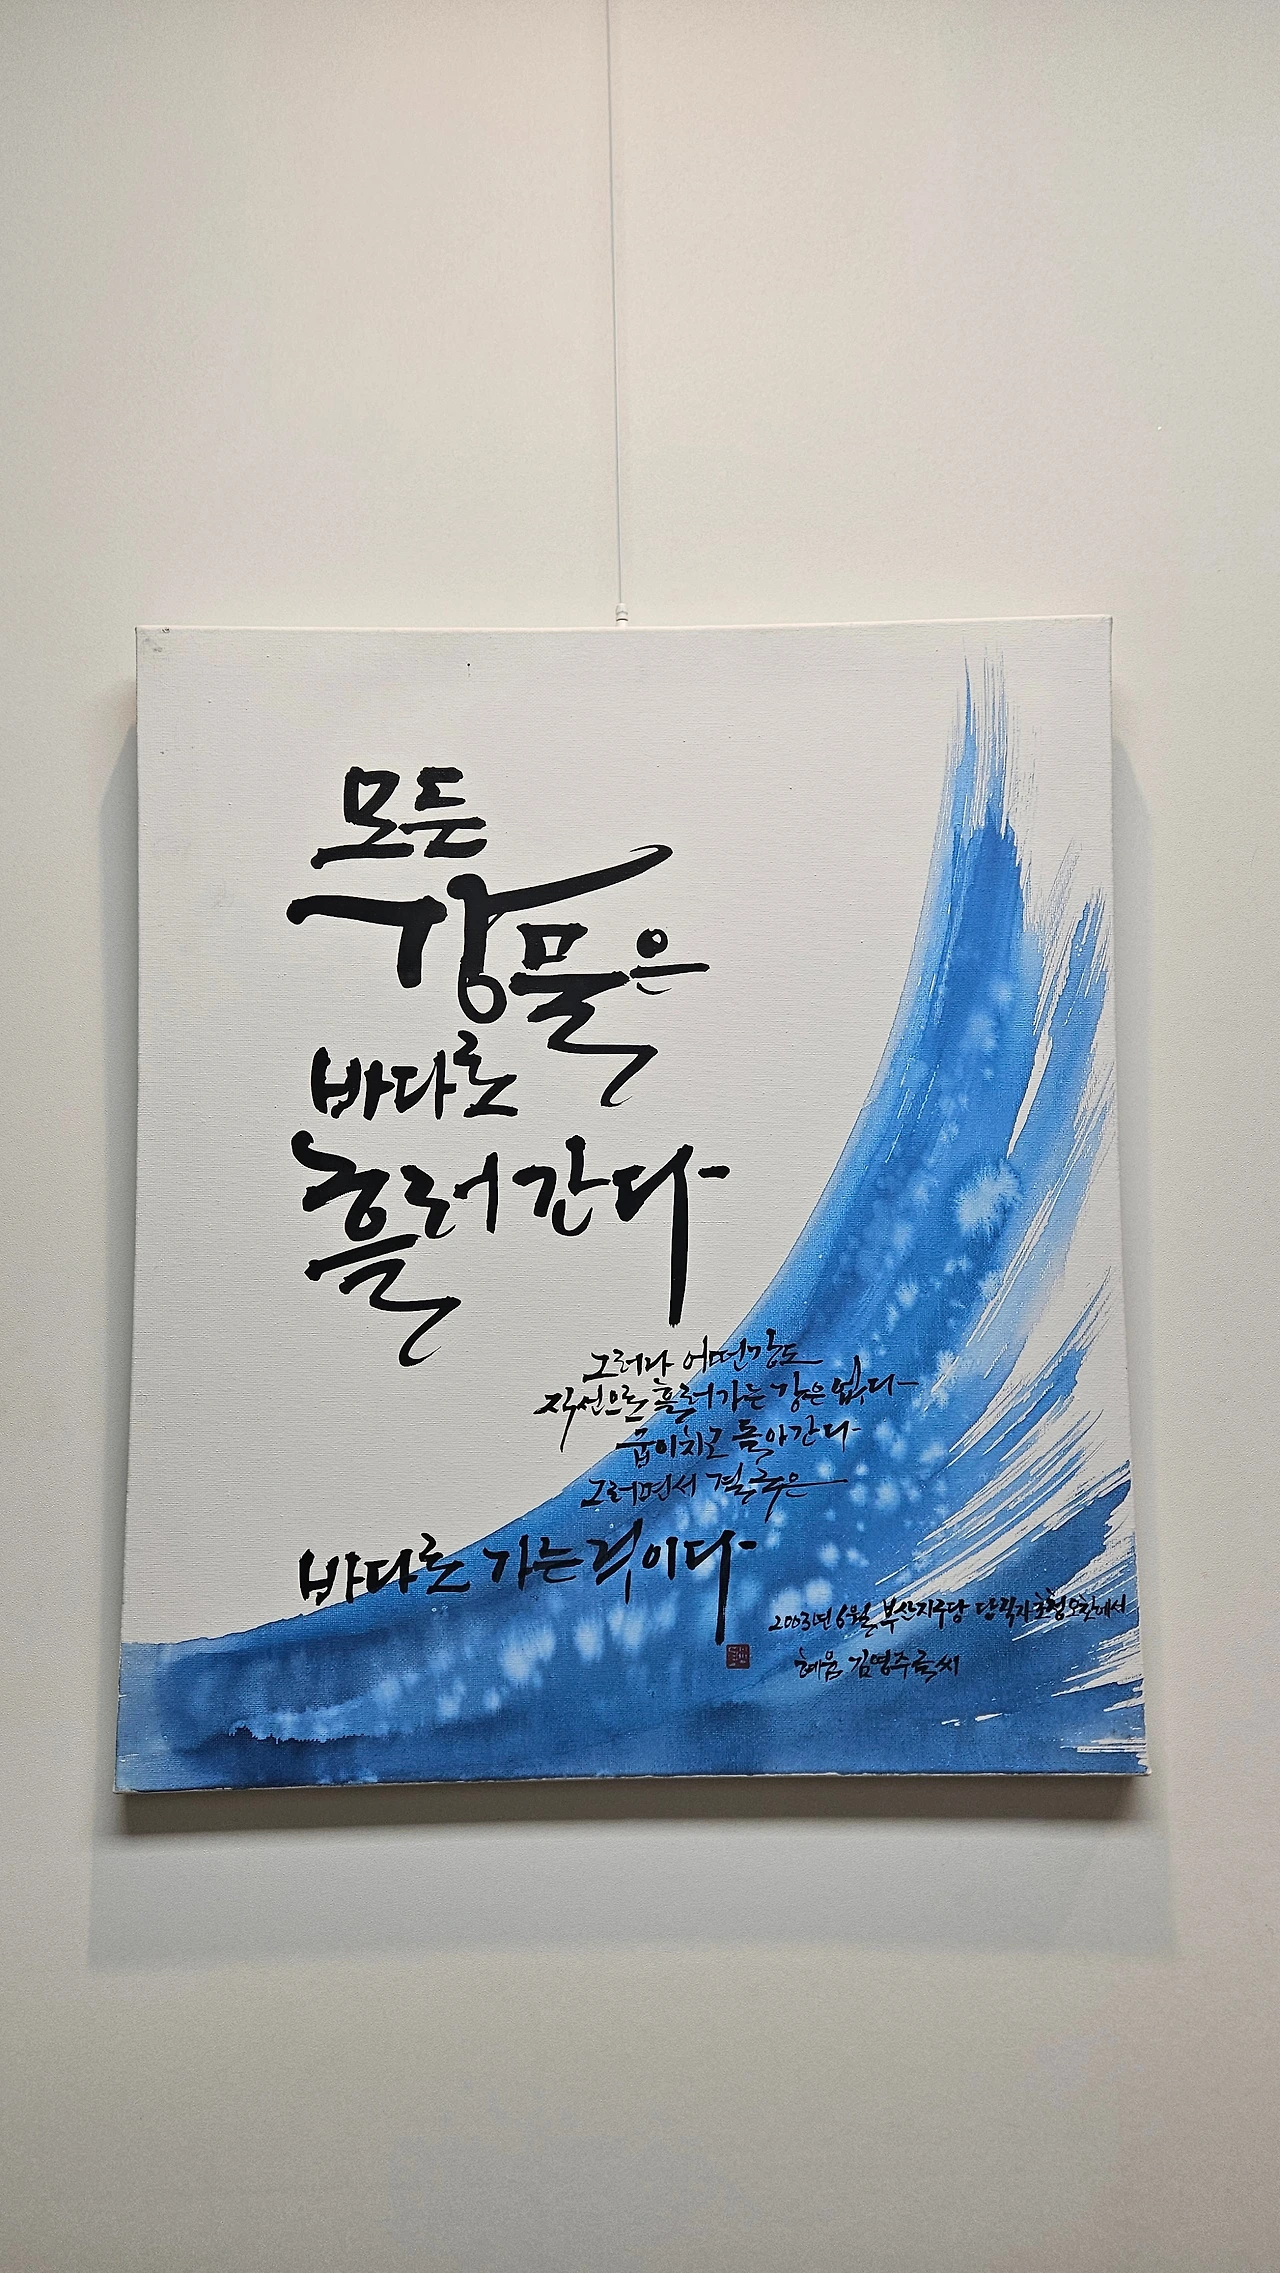 모든
강물은
바다로
흘러 간다
그러나 어떤강도
직선으로 흘러가는 강은 없다
굽이치고 돌아간다
그러면서 결국은
바다로 가는것이다
2003년 6월 부산지구당 당직자 초청 오찬에서
혜움 김영주글씨